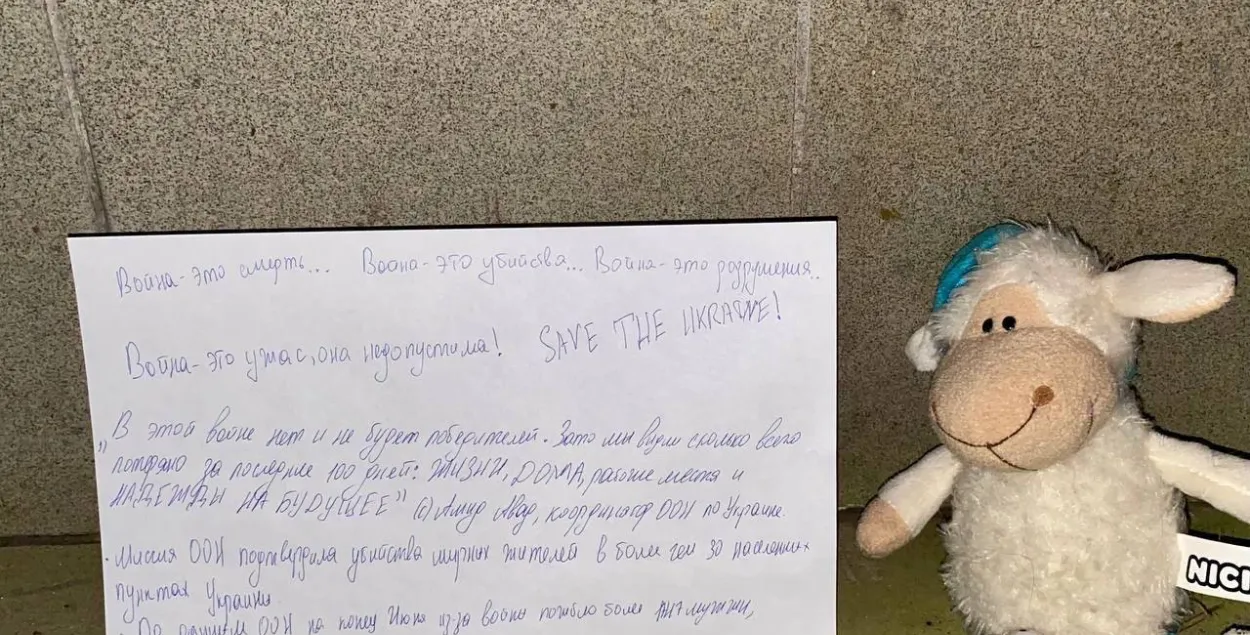 Война-это смерть... Война-это убийства... Война-это разрушения..
Война-это ужас, она недопустима! SAVE THE UKRAINE!
„В этой войне нет и не будет победителей. Зато мы видим сколько всего
потеряно за последние 100 дней: ЖИЗНИ, ДОМА, рабочие места и
НАДЕЖДЫ НА БУДУЩЕЕ" (с) Амид Авад, координатор ООН по Украине.
• Миссия ООН подтвердила убийства мирных жителей в более чем 30 населенных
пунктах Украины.
• По данным ООН на конец Июня из-за войны погибло более мужчин,
NICI